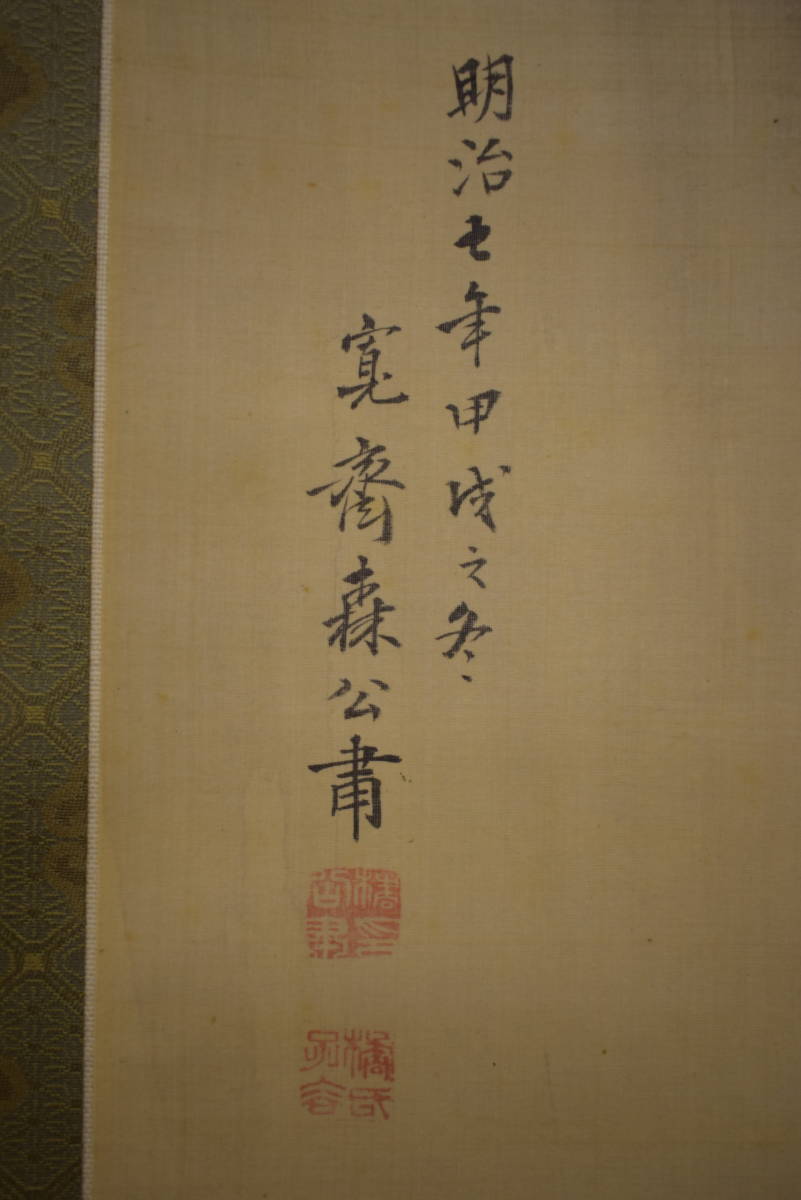 明治七年甲戌之冬
寛齋森公肅